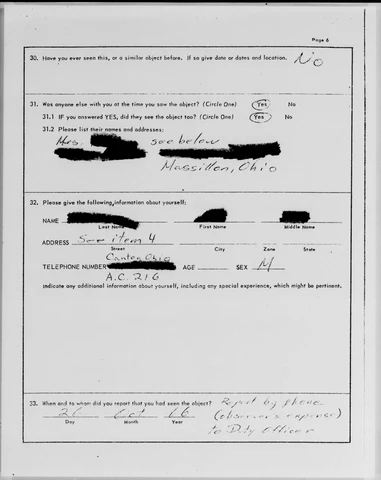 Page 6
30. Have you ever seen this, or a similar object before. If so give date or dates and location. No
31. Was anyone else with you at the time you saw the object? (Circle One) Yes No
31.1 IF you answered YES, did they see the object too? (Circle One) Yes No
31.2 Please list their names and addresses:
Mrs. see below
Massillon, Ohio
32. Please give the following information about yourself:
NAME
Last Name First Name Middle Name
ADDRESS See item 4
Street City Zone State
Canton Ohio
TELEPHONE NUMBER AGE SEX M
A.C. 216
Indicate any additional information about yourself, including any special experience, which might be pertinent.
33. When and to whom did you report that you had seen the object? Report by phone
26 Oct 66 (observer's expense)
Day Month Year to Duty Officer